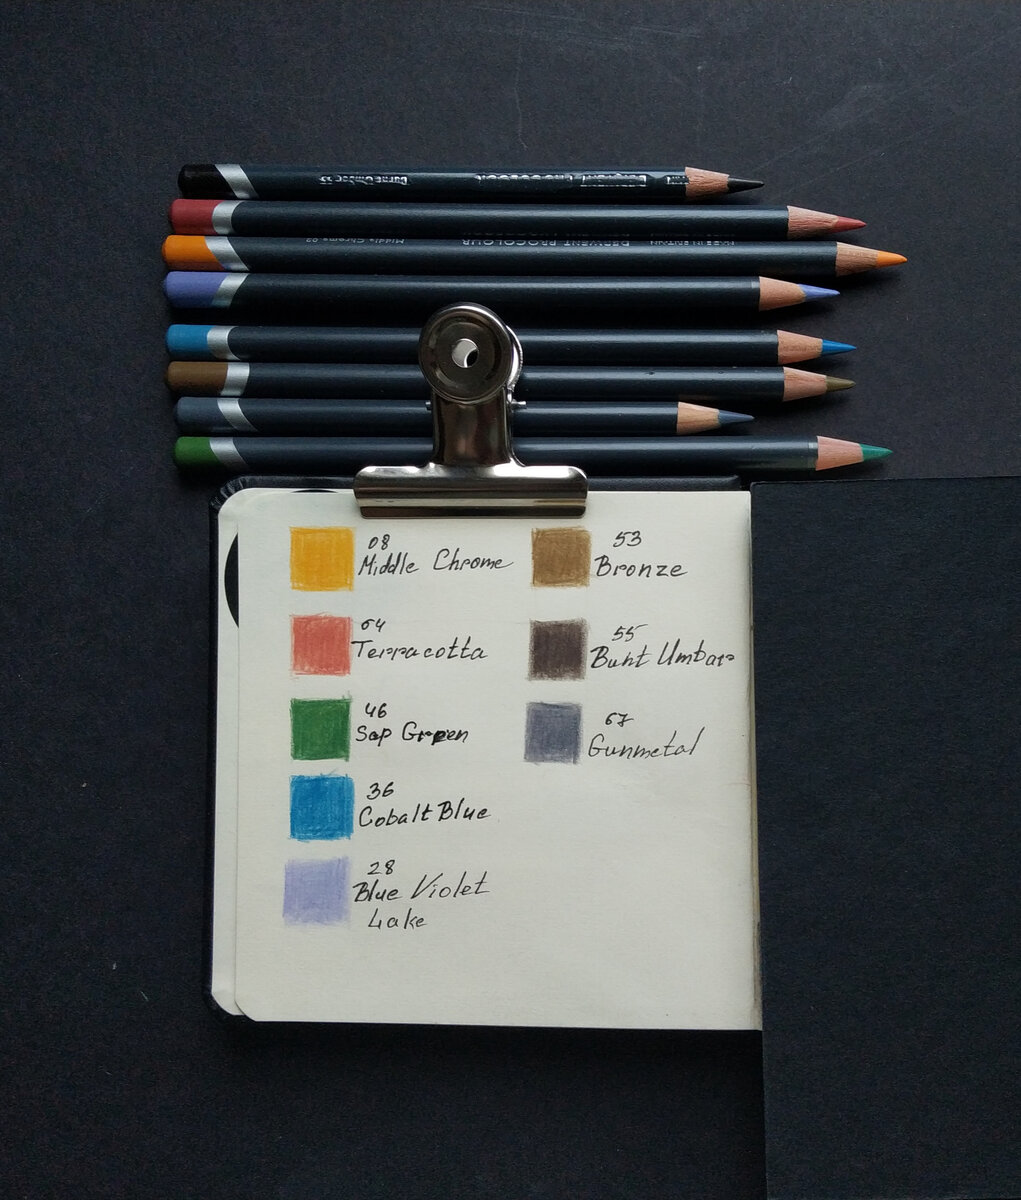 Burnt Umber 55
Middle Chrome 08
DERWENT PROCOLOUR
08
Middle Chrome
64
Terracotta
46
Sap Green
36
Cobalt Blue
28
Blue Violet
Lake
53
Bronze
55
Buht Umbar
67
Gunmetal